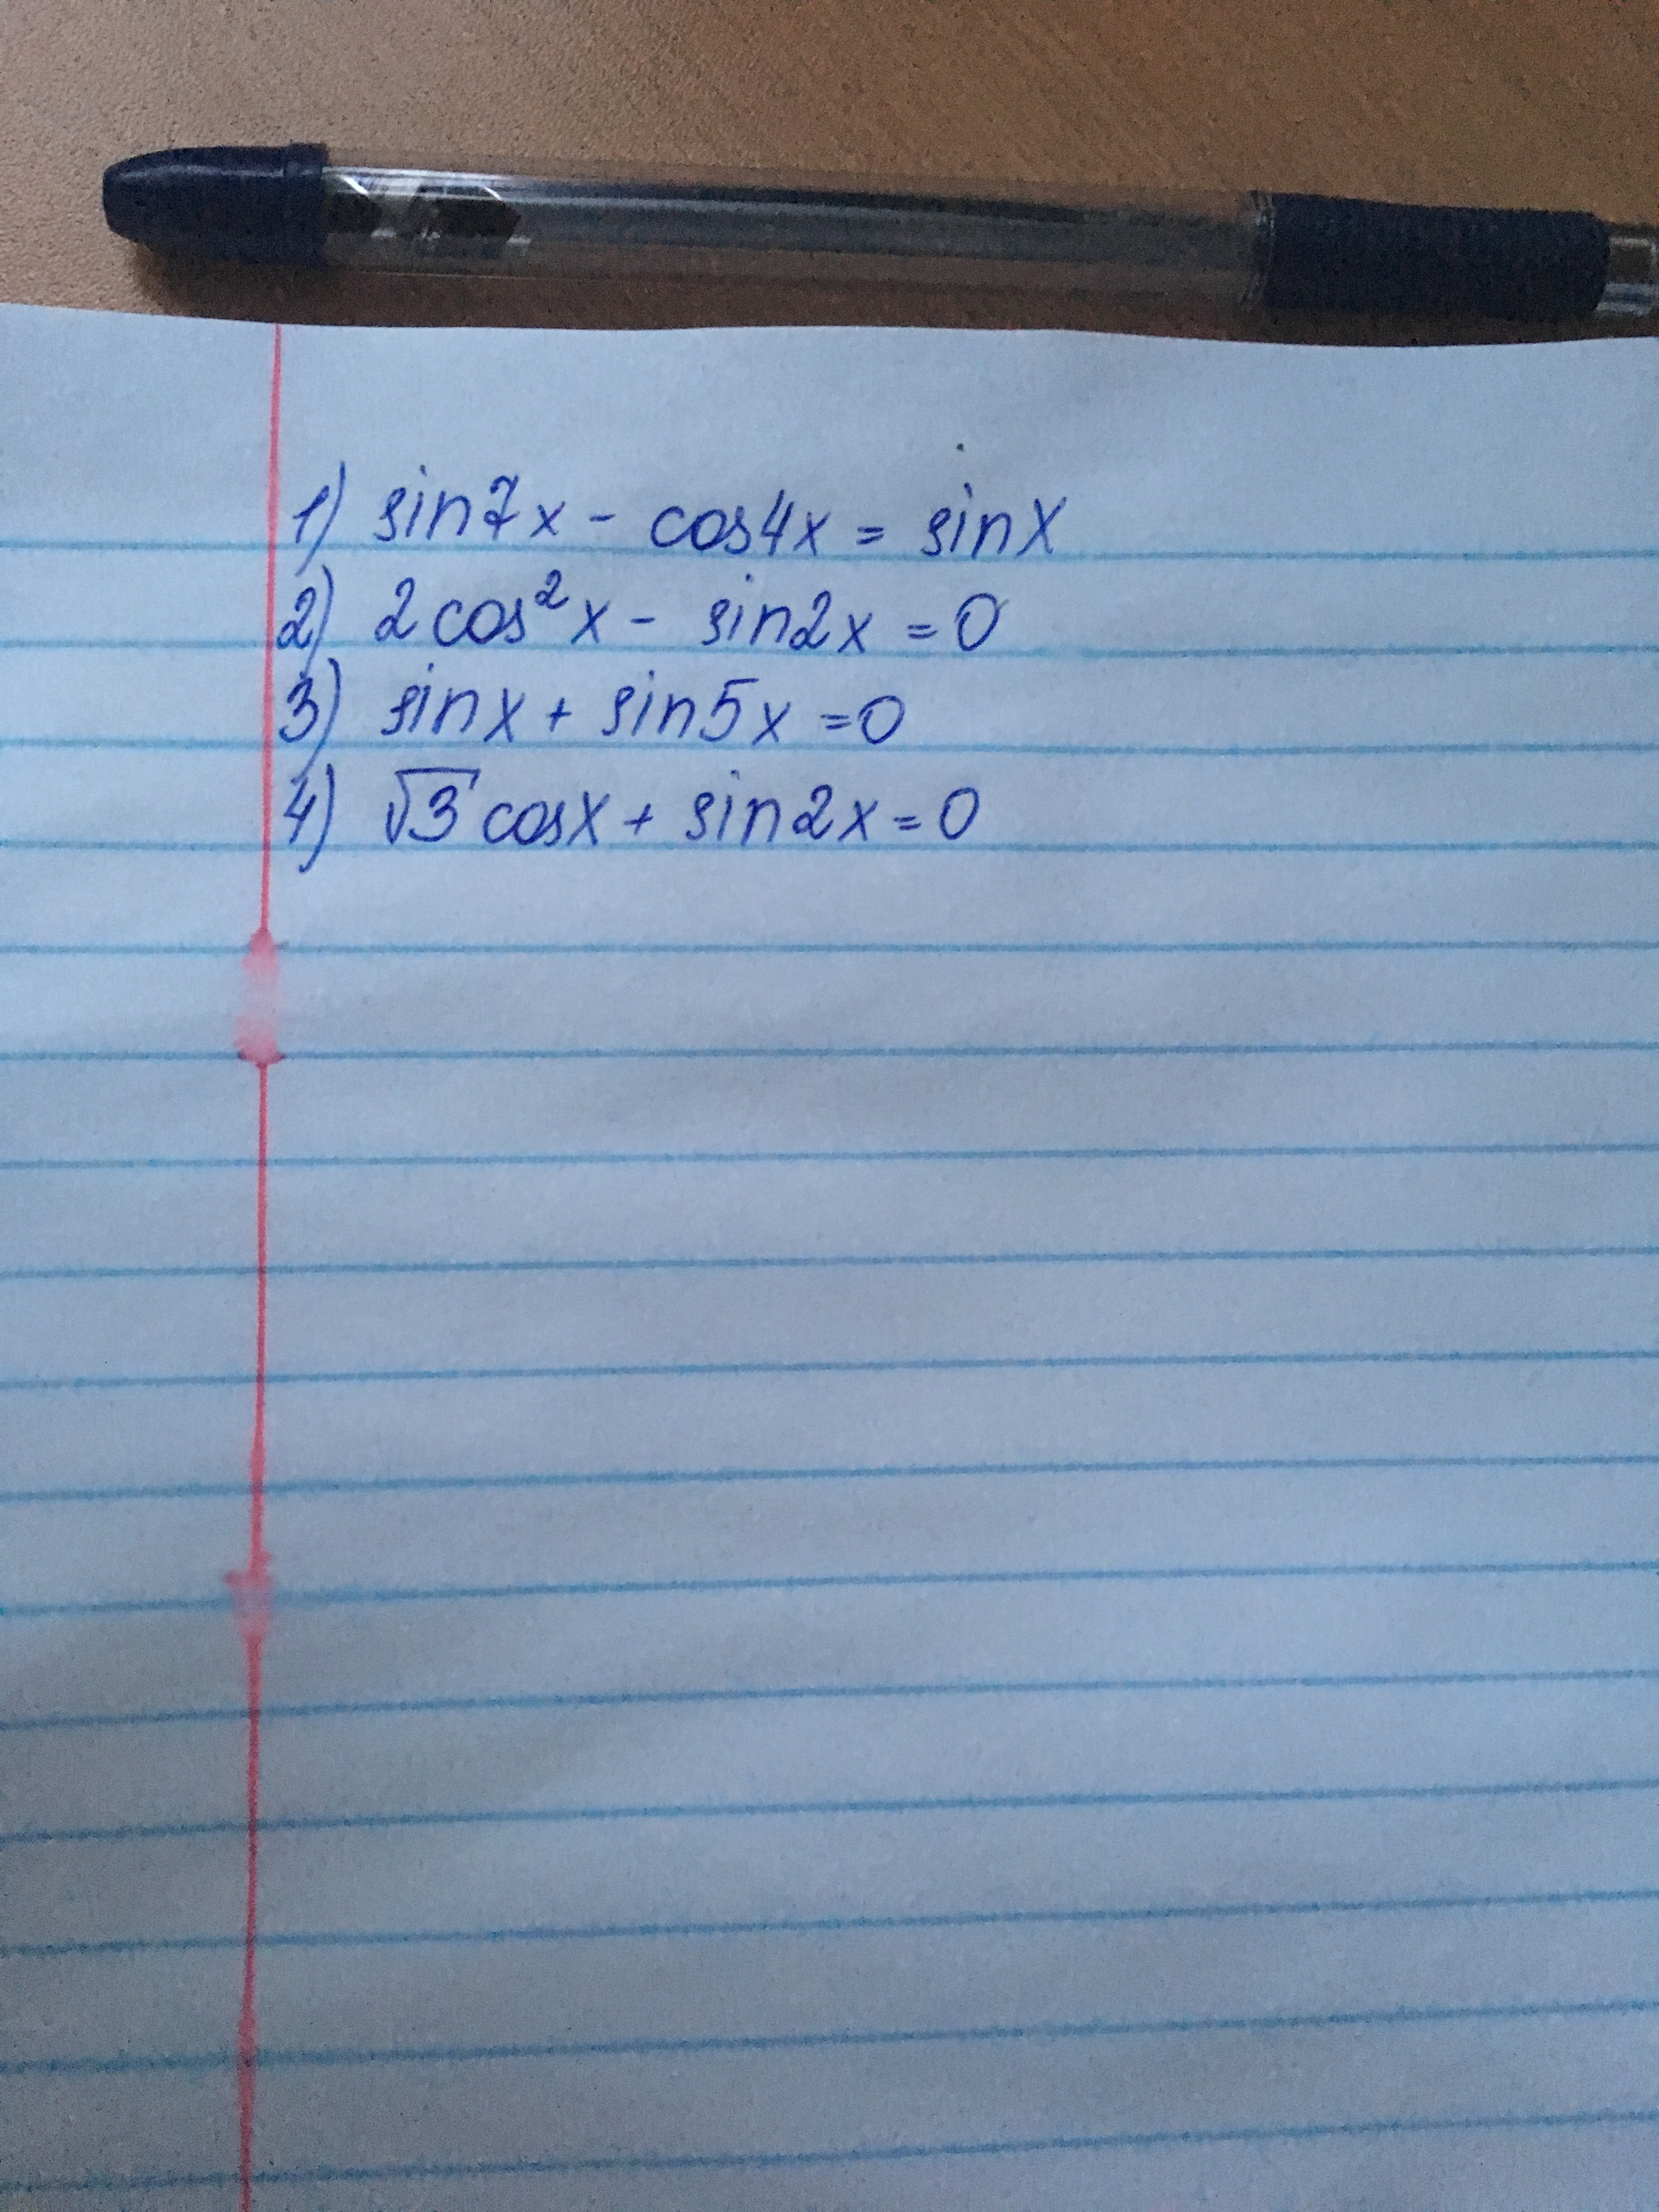 1) sin7x - cos4x = sinx
2) 2cos²x - sin2x = 0
3) sinx + sin5x = 0
4) √3cosx + sin2x = 0